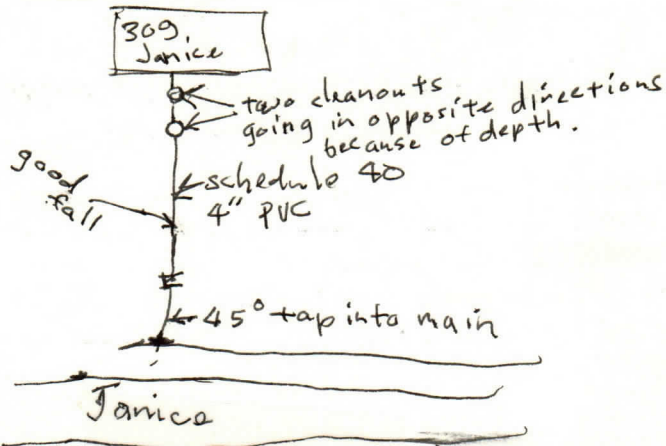 309
Janice
two cleanouts
going in opposite directions
because of depth.
good
fall
schedule 40
4" PVC
45° tap into main
Janice